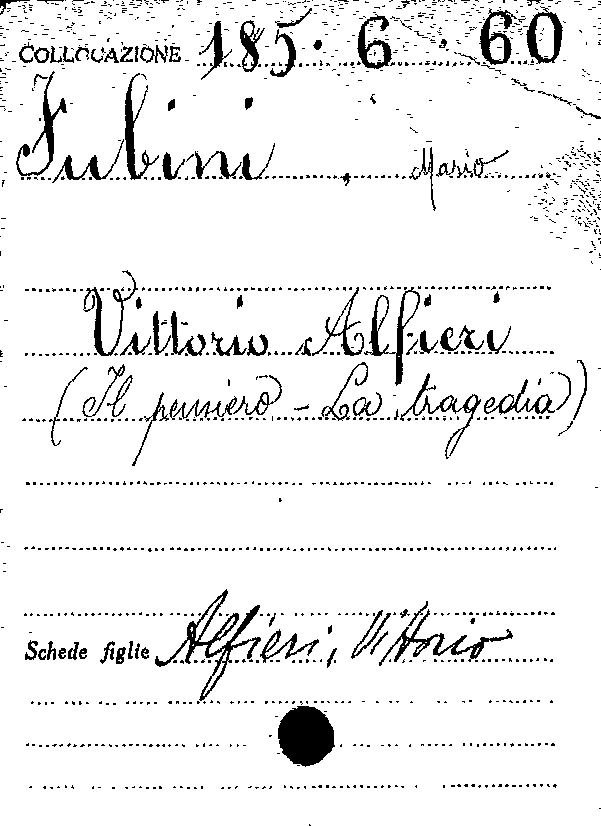 COLLOCAZIONE 185. 6. 60
Fubini, Mario
Vittorio Alfieri
(Il pensiero - La tragedia)
Schede figlie Alfieri, Vittorio